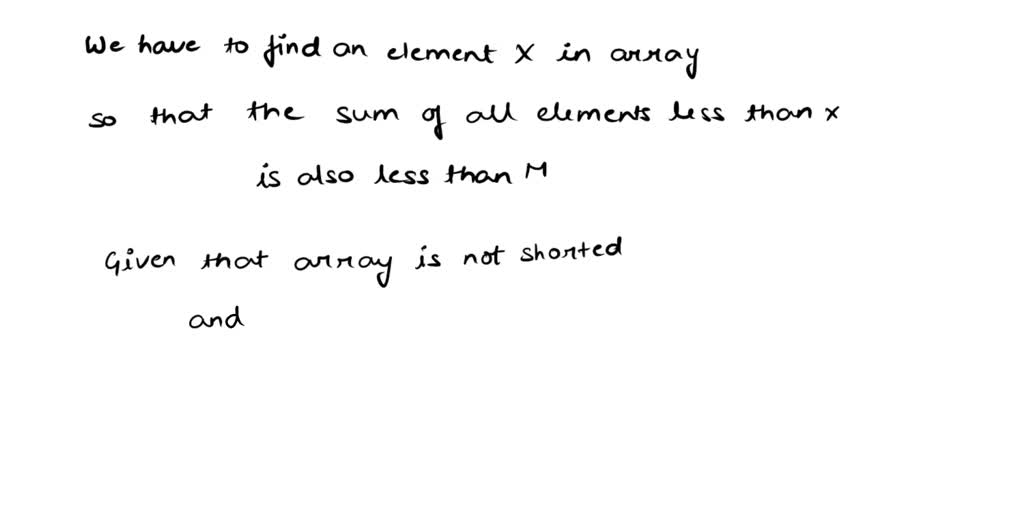 We have to find an element X in array
so that the sum of all elements less than x
is also less than M
Given that array is not shorted
and